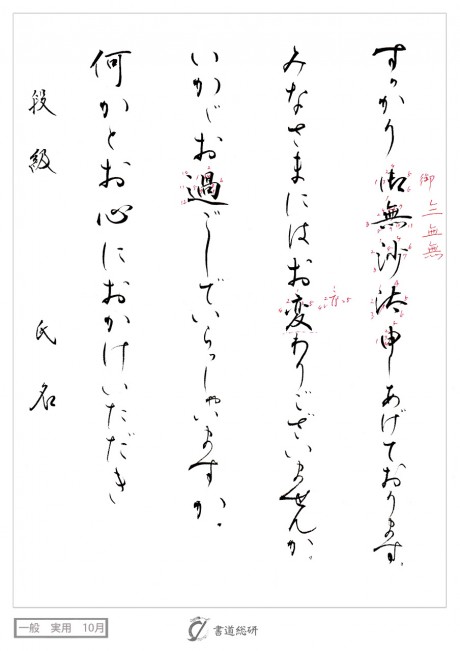 すっかり御無沙汰申しあげております。
みなさまにはお変わりございませんか。
いかがお過ごしでいらっしゃいますか。
何かとお心におかけいただき
段級 氏名
一般 実用 10月
書道総研